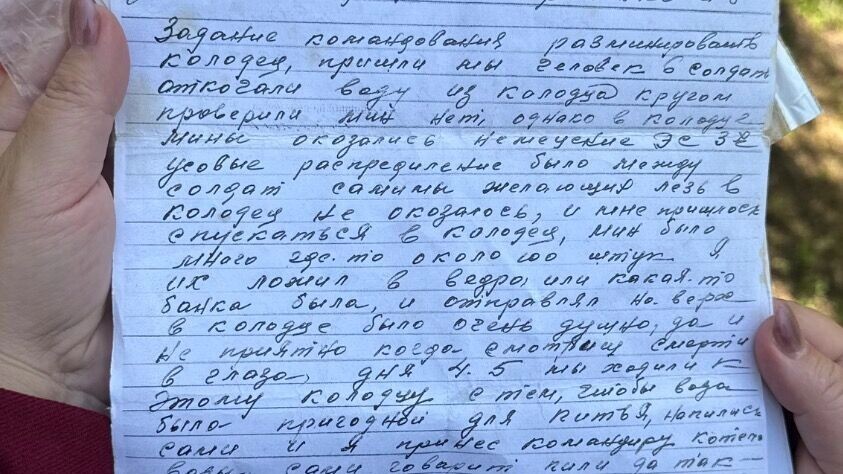 Задание командования разминировать
колодец, пришли мы человек 6 солдат
откочали воду из колодца кругом
проверили мин нет, однако в колодце
мины оказались немецкие ЭС 32
усовые распределение было между
солдат самимы желающих лезь в
колодец не оказалось, и мне пришлось
спускаться в колодец, мин было
много где-то около 100 штук я
их ложил в ведро, или какая-то
банка была, и отправлял на верх
в колодце было очень душно, да и
не приятно когда смотриш смерти
в глаза, дня 4-5 мы ходили к
этому колодцу с тем, чтобы вода
была пригодной для питья, напились
сами и я принес командиру котел
воды сами говорит пили да так